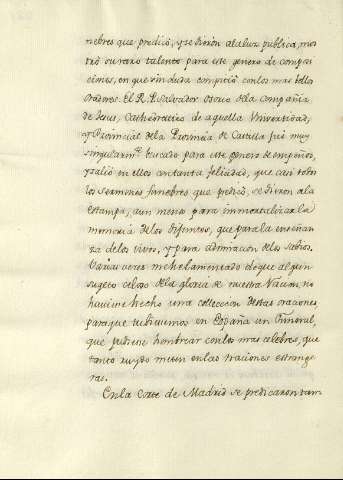 nebres que predicó, y se dieron a la luz publica, mos
tró su raro talento para este genero de compos
ciones, en que sin duda compitió con los mas bellos
oradores. El R. P. Salvador Osorio dela compañia
de Jesus, Cathedratico de aquella Universidad,
y Provincial dela Provincia de Castilla fué muy
singularmte. buscado para este genero de empeños,
y salió en ellos con tanta felicidad, que casi todos
los sermones funebres que predicó, se dieron a la
estampa, aun menos para immortalizar la
memoria delos difuntos, que para la enseñan
za delos vivos, y para admiracion delos sabios.
Varias veces me he lamentado de que algun
sugeto celoso dela gloria de nuestra Nacion, no
huviese hecho una colleccion destas oraciones
para que tubiesemos en España un Funeral,
que pudiese hombrear con los mas celebres, que
tanto ruydo meten en las naciones estrange
ras.
En la Corte de Madrid se predicaron tam